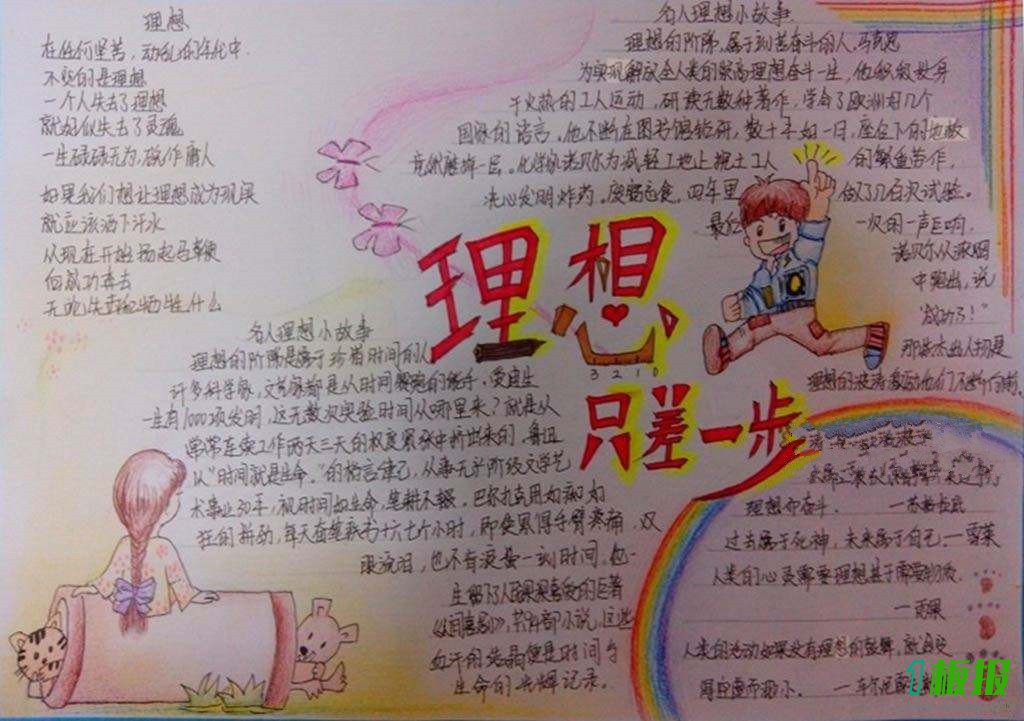 理想
在任何坚苦，动乱的年代中
不变的是理想
一个人失去了理想
就好似失去了灵魂
一生碌碌无为，故作庸人
如果我们想让理想成为现实
就应该洒下汗水
从现在开始扬起马鞭
向成功奔去
无论失去和牺牲什么
名人理想小故事
理想的阶隙，属于刻苦奋斗的人，马克思
为实现解放全人类的崇高理想奋斗一生，他积极投身
于火热的工人运动，研读无数种著作，学会了欧洲好几个
国家的语言。他不断在图书馆钻研，数十年如一日，座位下的地板
竟然磨掉一层。化学家诺贝尔为减轻工地上挖土工人的繁重劳作，
决心发明炸药，废寝忘食。四年里做了几百次试验。
最后一次的一声巨响，
诺贝尔从浓烟
中跑出，说
“成功了！”
那些杰出人物是
理想的波涛
理想
只差一步
3 2 1 0
名人理想小故事
理想的阶隙是属于珍惜时间的人
许多科学家，文学家都是从时间
一生有1000项发明，这无数次实验时间从哪里来？就是从
常常连续工作两天三天的极度紧张中挤出来的，鲁迅
以“时间就是生命。”的格言律己，从事无产阶级文学艺
术事业30年，视时间如生命，笔耕不辍。巴尔扎克用如痴如
狂的拼劲，每天奋笔疾书十六七个小时，即使累得手臂疼痛，双
眼流泪，也不肯浪费一刻时间。他一
生留下了人民深深喜爱的巨著
《人间喜剧》，共
血汗的结晶便是时间与
生命的光辉记录。
理想即奋斗。
过去属于死神，未来属于自己。——雪莱
人类的心灵需要理想甚于需要物质。
——雨果
人类的活动如果没有理想的鼓舞，就会变
得空虚而渺小。——车尔尼
1板报